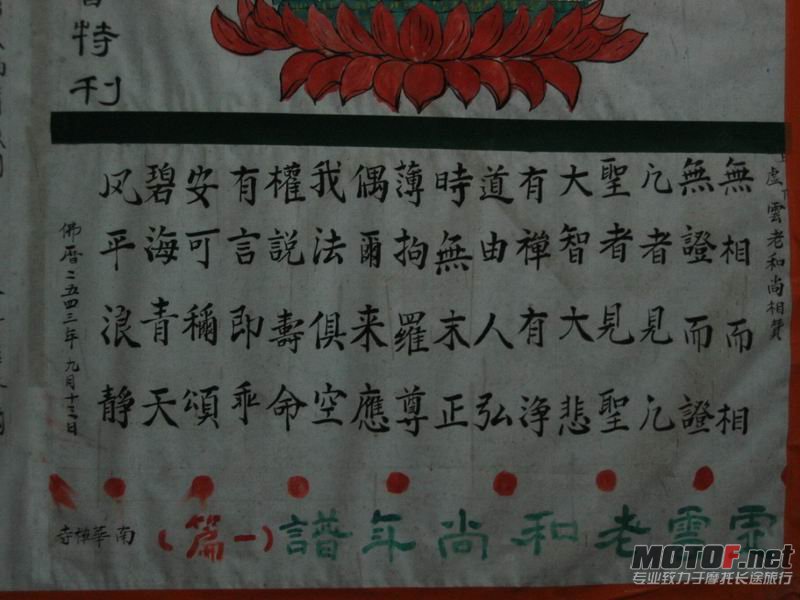 特利
虚雲老和尚相贊
無相而相
無證而證
凡者見凡
聖者見聖
大智大悲
有禪有净
道由人弘
時無末正
薄拘羅尊
偶爾来應
我法俱空
權説壽命
有言即乖
安可稱頌
碧海青天
风平浪静
佛曆二五四三年九月十三日
虚雲老和尚年譜(一篇)
南華禅寺
MOTOF.net
专业致力于摩托长途旅行